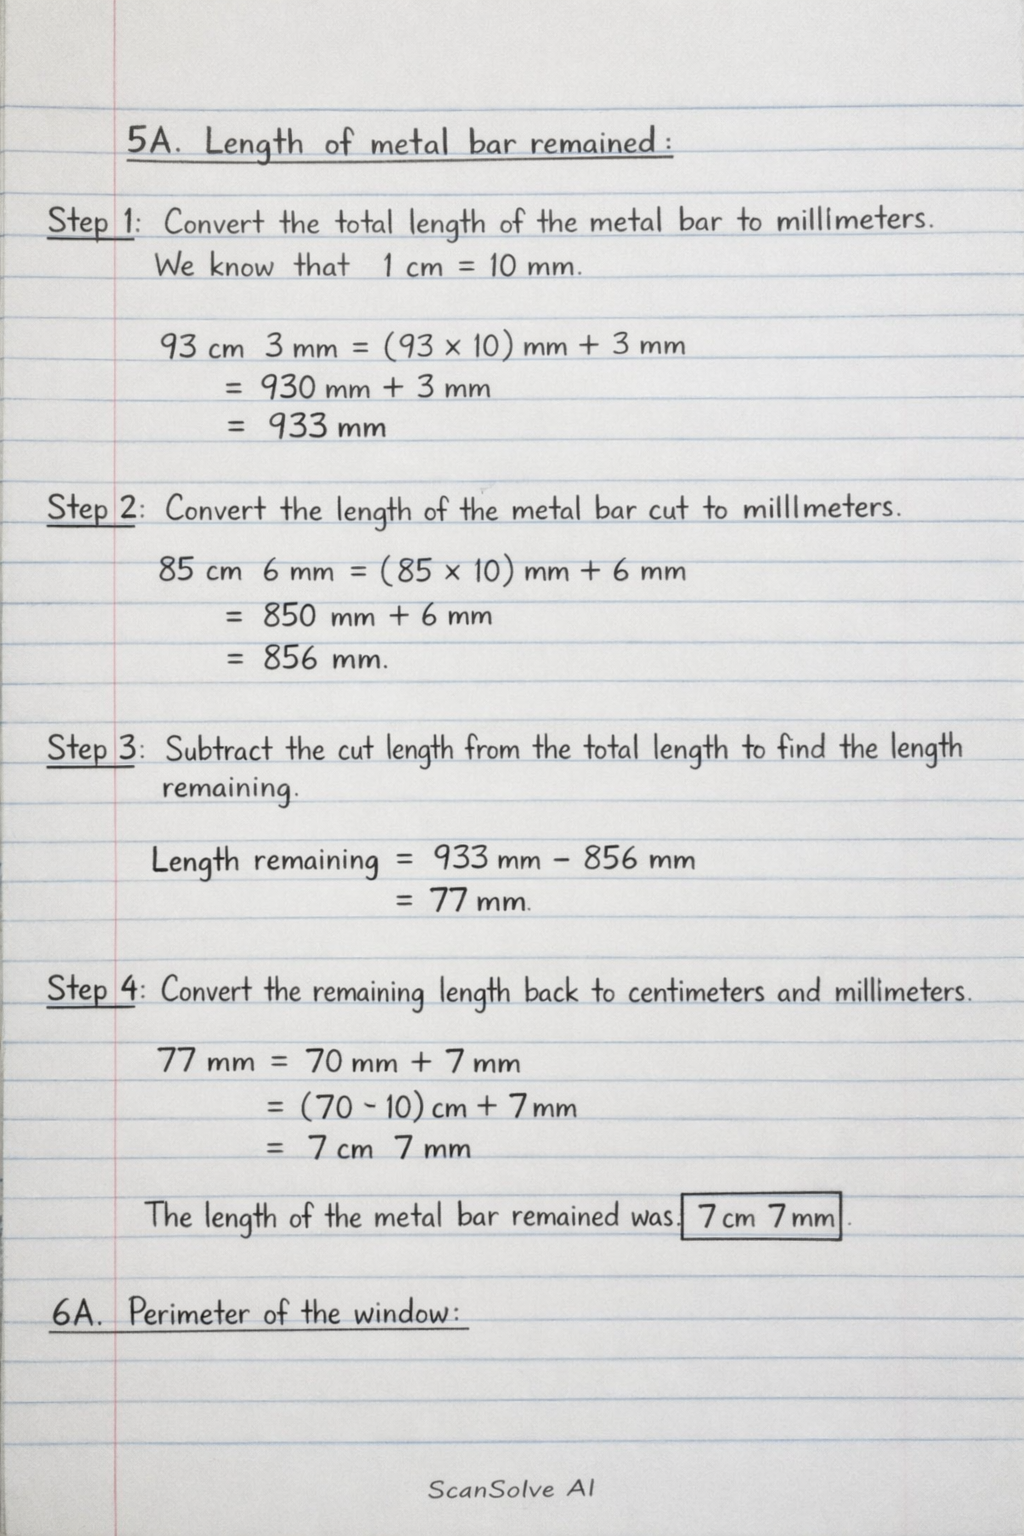 5A. Length of metal bar remained:
Step 1: Convert the total length of the metal bar to millimeters.
We know that 1 cm = 10 mm.
93 cm 3 mm = (93 × 10) mm + 3 mm
= 930 mm + 3 mm
= 933 mm
Step 2: Convert the length of the metal bar cut to milllmeters.
85 cm 6 mm = (85 × 10) mm + 6 mm
= 850 mm + 6 mm
= 856 mm.
Step 3: Subtract the cut length from the total length to find the length
remaining.
Length remaining = 933 mm - 856 mm
= 77 mm.
Step 4: Convert the remaining length back to centimeters and millimeters.
77 mm = 70 mm + 7 mm
= (70 - 10) cm + 7 mm
= 7 cm 7 mm
The length of the metal bar remained was. 7 cm 7 mm.
6A. Perimeter of the window:
ScanSolve AI